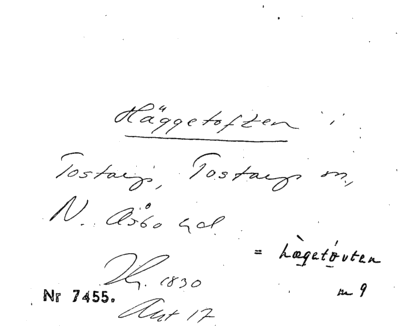 Häggetoften i
Tostarp, Tostarps sn,
N. Åsbo hd.
= hàgetòvten
1830
m 9
Nr 7455.
Akt 17